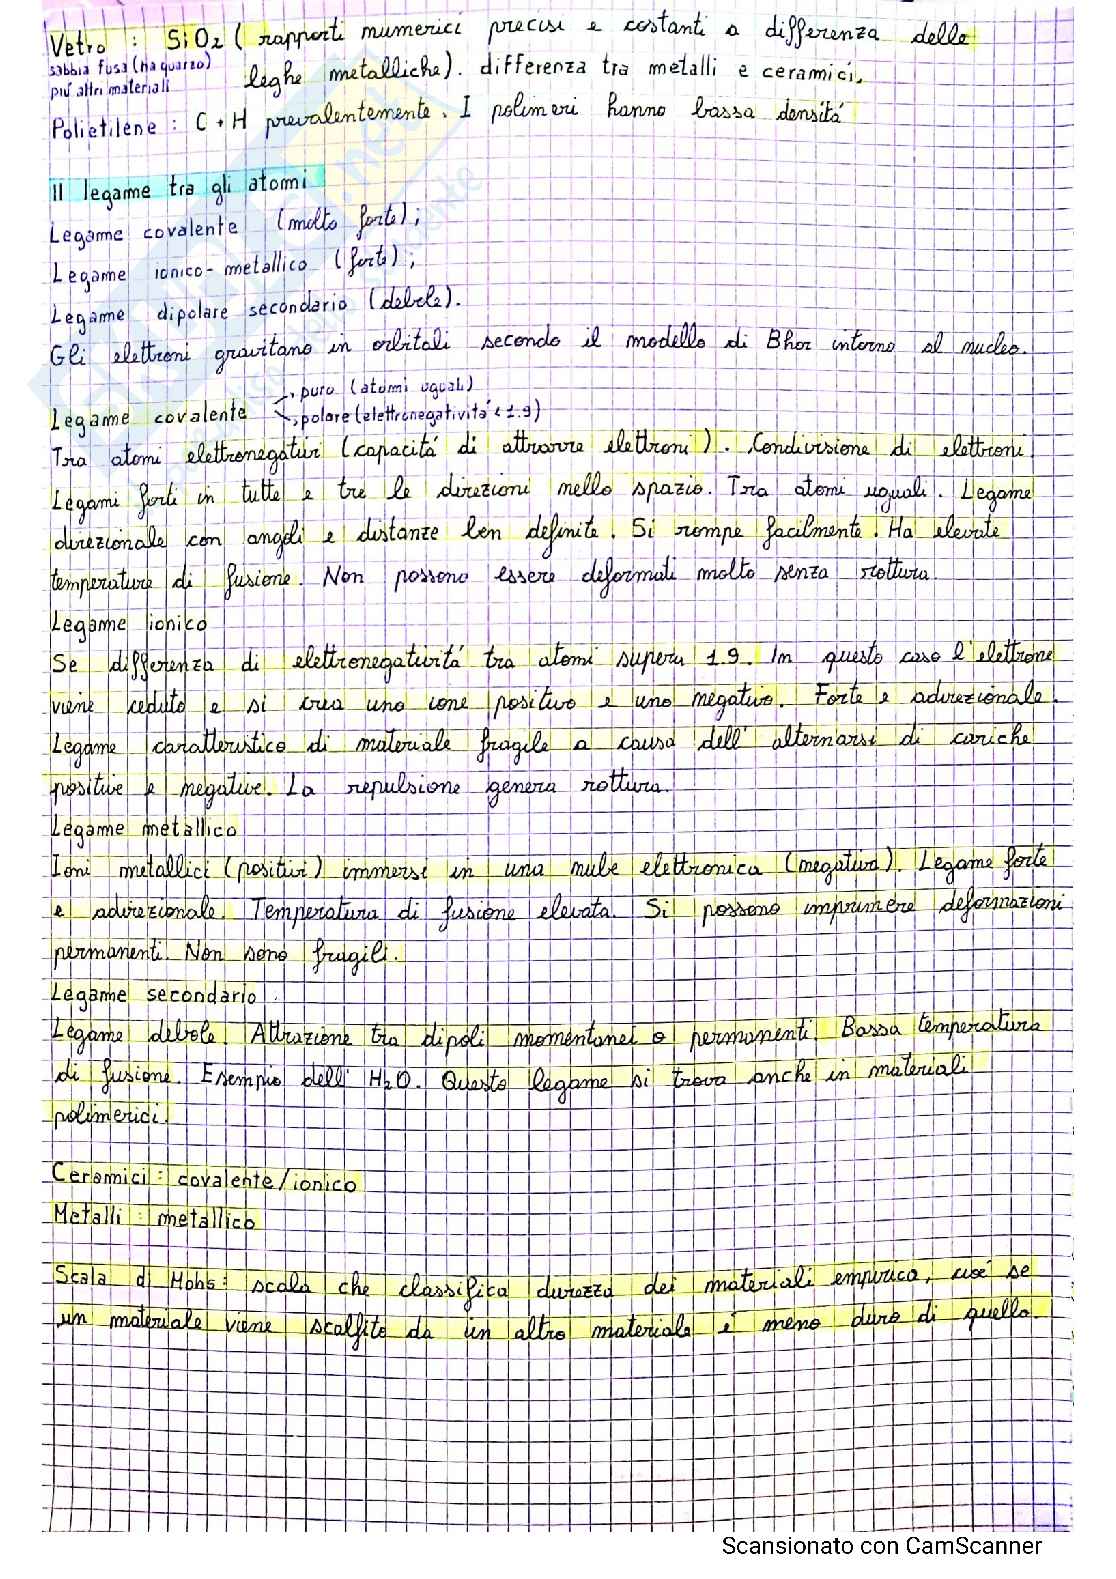 Vetro : SiO2 ( rapporti numerici precisi e costanti a differenza delle
sabbia fusa (ha quarzo)
più altri materiali
leghe metalliche). differenza tra metalli e ceramici.
Polietilene : C + H prevalentemente. I polimeri hanno bassa densitá
Il legame tra gli atomi
Legame covalente (molto forte);
Legame ionico-metallico (forte);
Legame dipolare secondario (debole).
Gli elettroni gravitano in orbitali secondo il modello di Bhor intorno al nucleo.
puro (atomi uguali)
Legame covalente
polare (elettronegativitá < 1.9)
Tra atomi elettronegativi (capacitá di attrarre elettroni). Condivisione di elettroni.
Legami forti in tutte e tre le direzioni nello spazio. Tra atomi uguali. Legame
direzionale con angoli e distanze ben definite. Si rompe facilmente. Ha elevate
temperature di fusione. Non possono essere deformati molto senza rottura.
Legame ionico
Se differenza di elettronegativitá tra atomi supera 1.9. In questo caso l'elettrone
viene ceduto e si crea uno ione positivo e uno negativo. Forte e adirezionale.
Legame caratteristico di materiale fragile a causa dell'alternarsi di cariche
positive e negative. La repulsione genera rottura.
Legame metallico
Ioni metallici (positivi) immersi in una nube elettronica (negativa). Legame forte
e adirezionale. Temperatura di fusione elevata. Si possono imprimere deformazioni
permanenti. Non sono fragili.
Legame secondario
Legame debole. Attrazione tra dipoli momentanei o permanenti. Bassa temperatura
di fusione. Esempio dell'H2O. Questo legame si trova anche in materiali
polimerici.
Ceramici : covalente/ionico
Metalli : metallico
Scala di Mohs : scala che classifica durezza dei materiali empirica, cioé se
un materiale viene scalfito da un altro materiale é meno duro di quello.
Scansionato con CamScanner